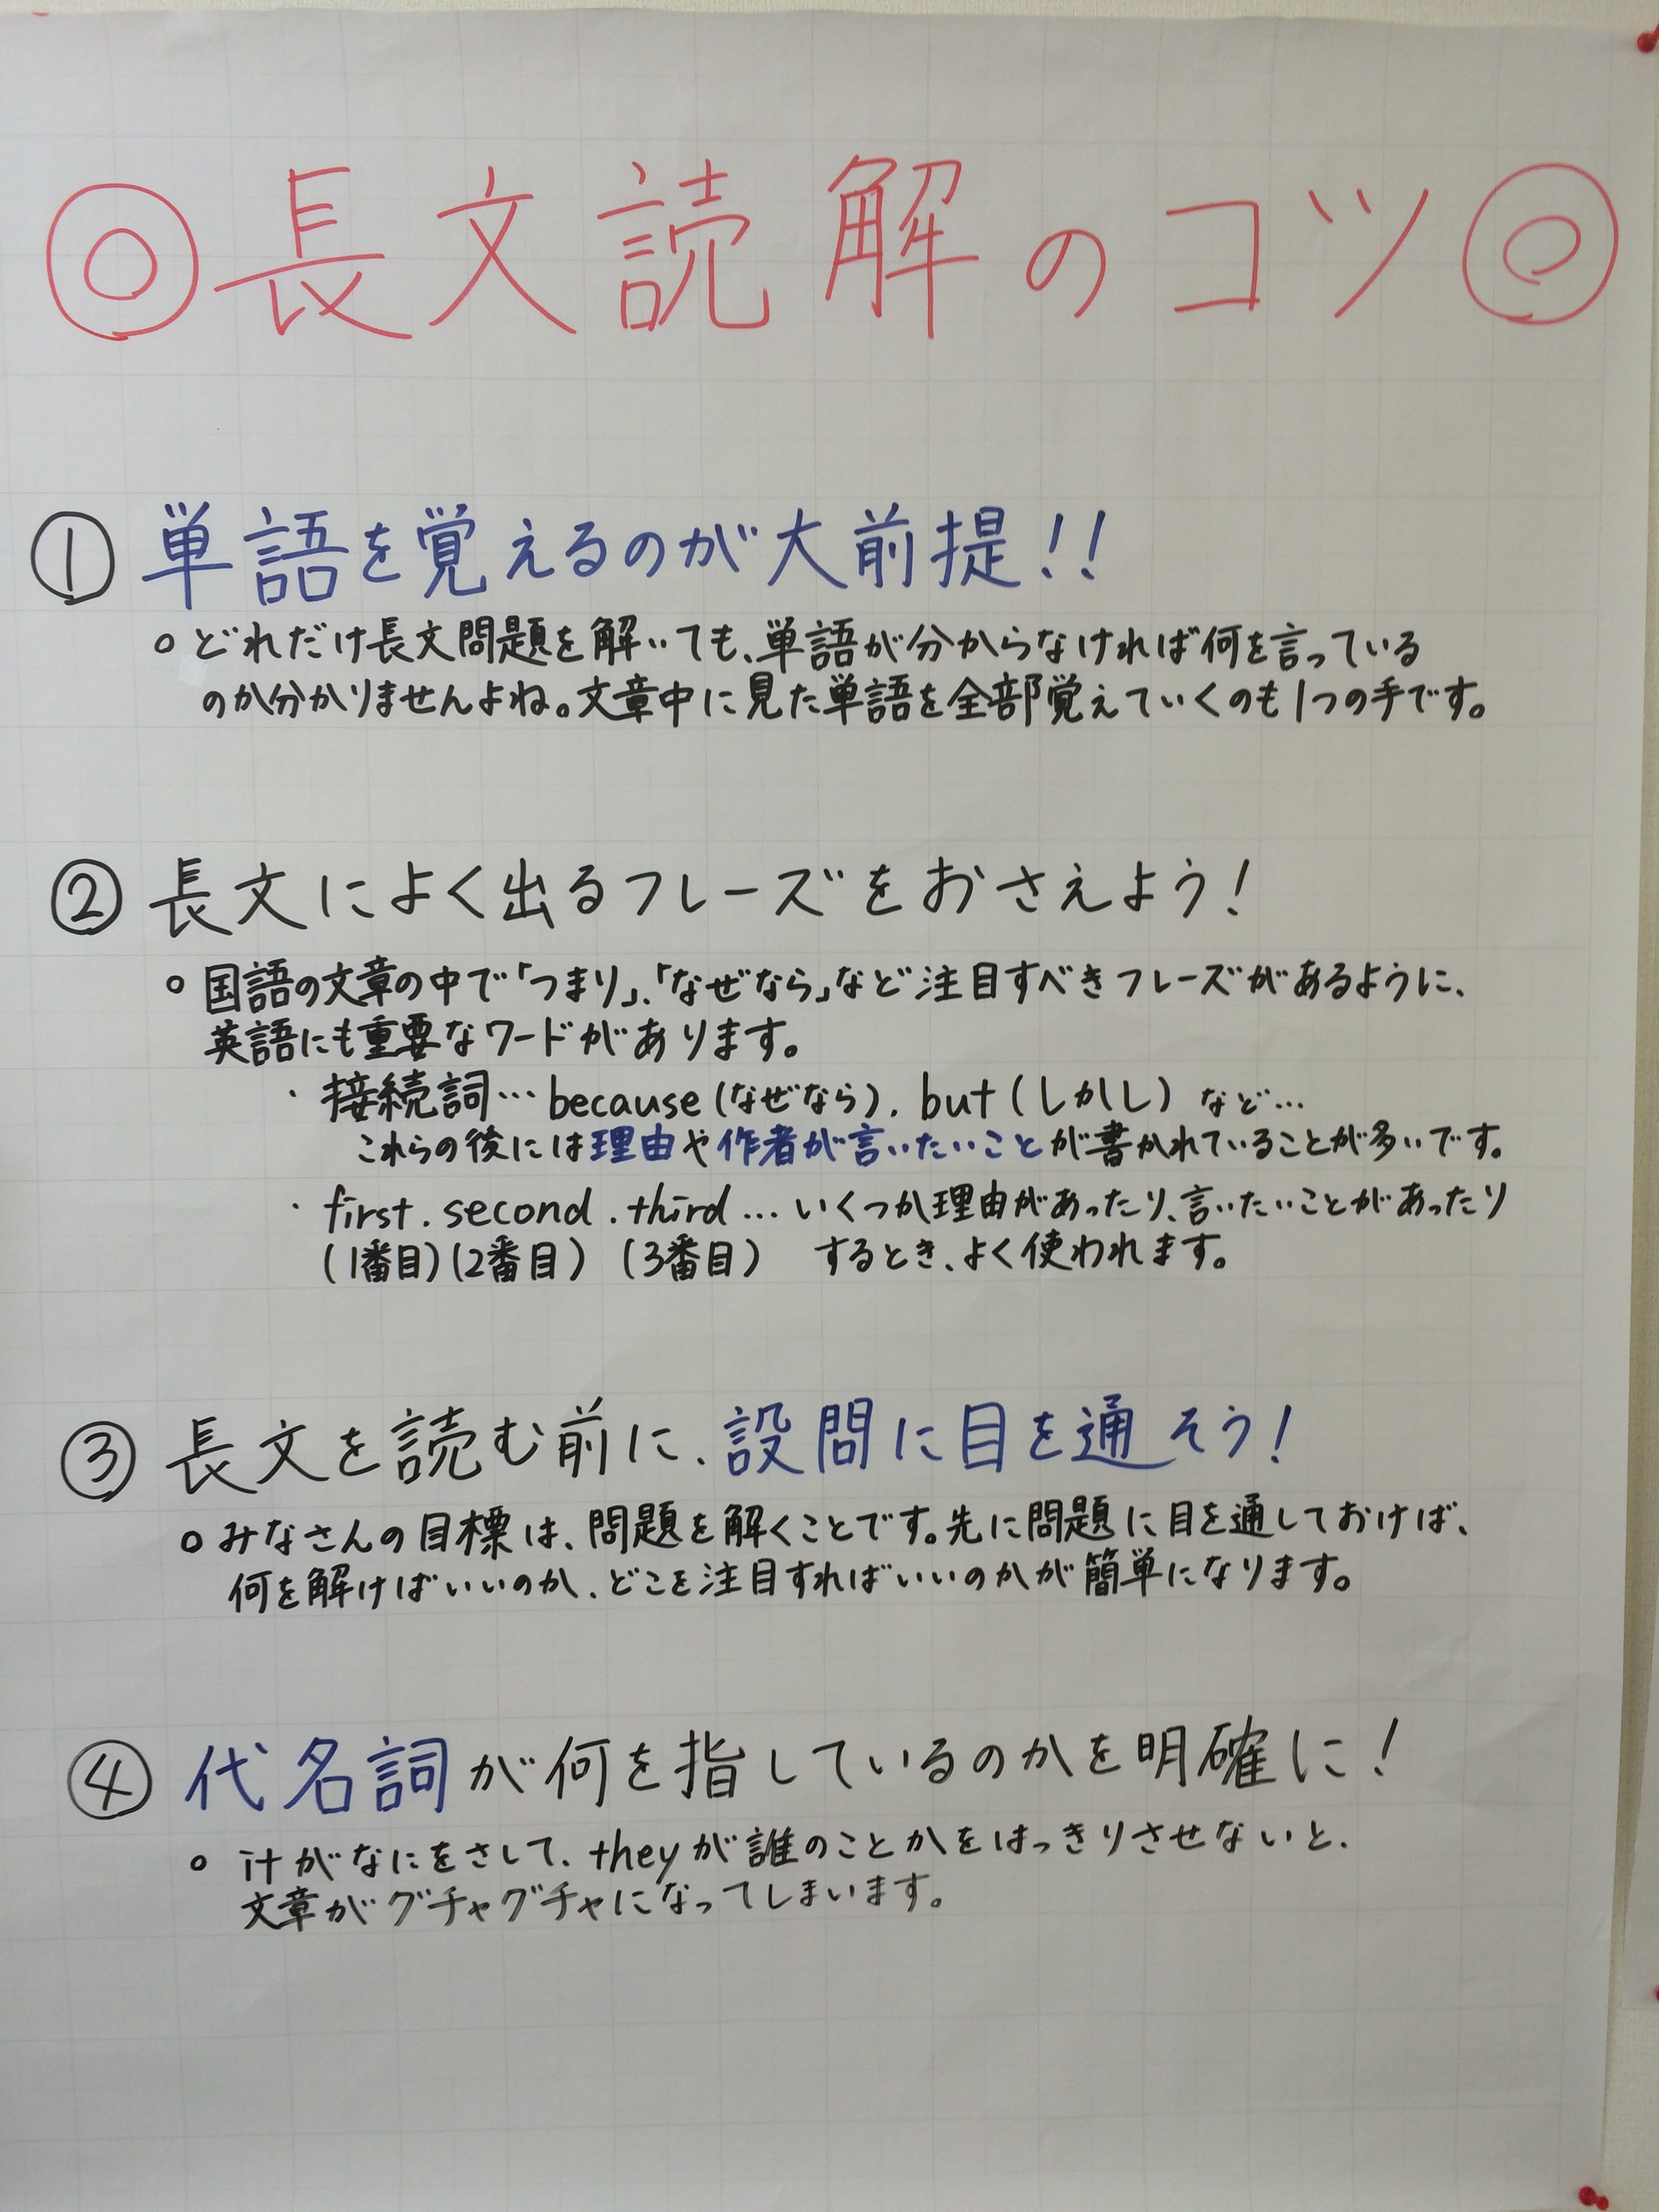 ◎長文読解のコツ◎
① 単語を覚えるのが大前提!!
○どれだけ長文問題を解いても、単語が分からなければ何を言っている
のか分かりませんよね。文章中に見た単語を全部覚えていくのも1つの手です。
② 長文によく出るフレーズをおさえよう!
○国語の文章の中で「つまり」、「なぜなら」など注目すべきフレーズがあるように、
英語にも重要なワードがあります。
・接続詞… because (なぜなら)、but (しかし) など…
これらの後には理由や作者が言いたいことが書かれていることが多いです。
・first、second、third… いくつか理由があったり、言いたいことがあったり
(1番目)(2番目) (3番目) するとき、よく使われます。
③ 長文を読む前に、設問に目を通そう!
○みなさんの目標は、問題を解くことです。先に問題に目を通しておけば、
何を解けばいいのか、どこを注目すればいいのかが簡単になります。
④ 代名詞が何を指しているのかを明確に!
○ itがなにをさして、theyが誰のことかをはっきりさせないと、
文章がグチャグチャになってしまいます。